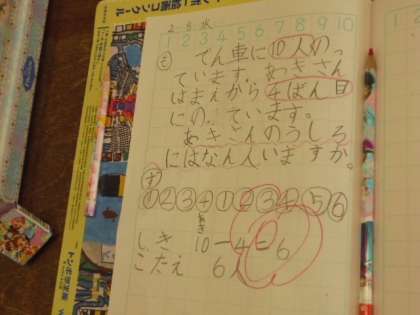 2 5 水
1 2 3 4 5 6 7 8 9 10
も
でん車に10人のっ
ています。あきさん
はまえから4ばん目
にのっています。
あきさんのうしろ
にはなん人いますか。
ず
①②③④①②③④⑤⑥
あき
しき 10-4=6
こたえ 6人
トンボ鉛筆